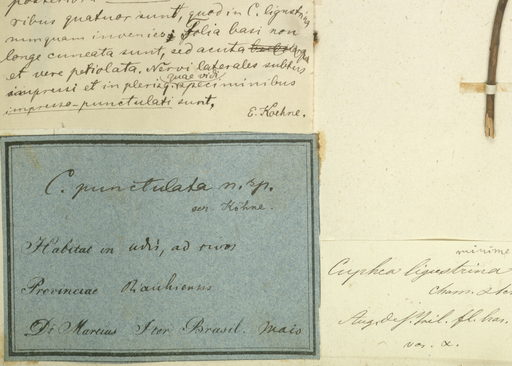 ribus quatuor sunt, quod in C. ligustrina
nunquam invenies; Folia basi non
longe cuneata sunt, sed acuta
et vere petiolata. Nervi laterales subtus
quae vidi
impressi et in plerisq. speciminibus
impresso-punctulati sunt.
E. Koehne.
C. punctulata n. sp.
sec. Köhne.
Habitat in udis, ad rivos
Provinciae Piauhiensis
Dr Martius Iter Brasil. Maio
minime
Cuphea ligustrina
Cham. &
var. α.